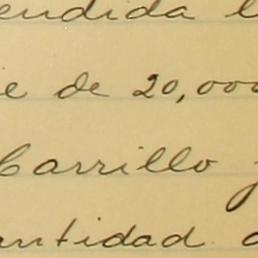 endida
e de 20,000
Carrillo
antidad